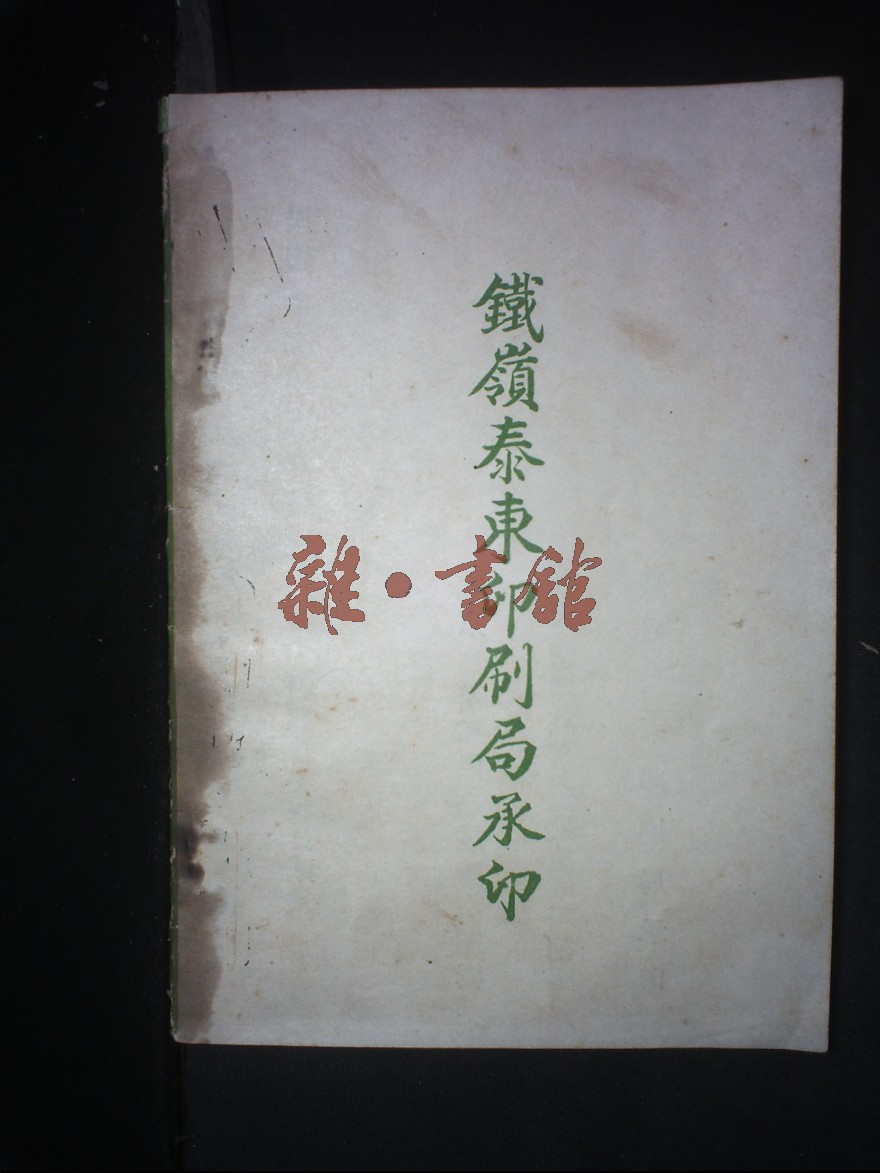 鐵嶺泰東印刷局承印
雜·書館